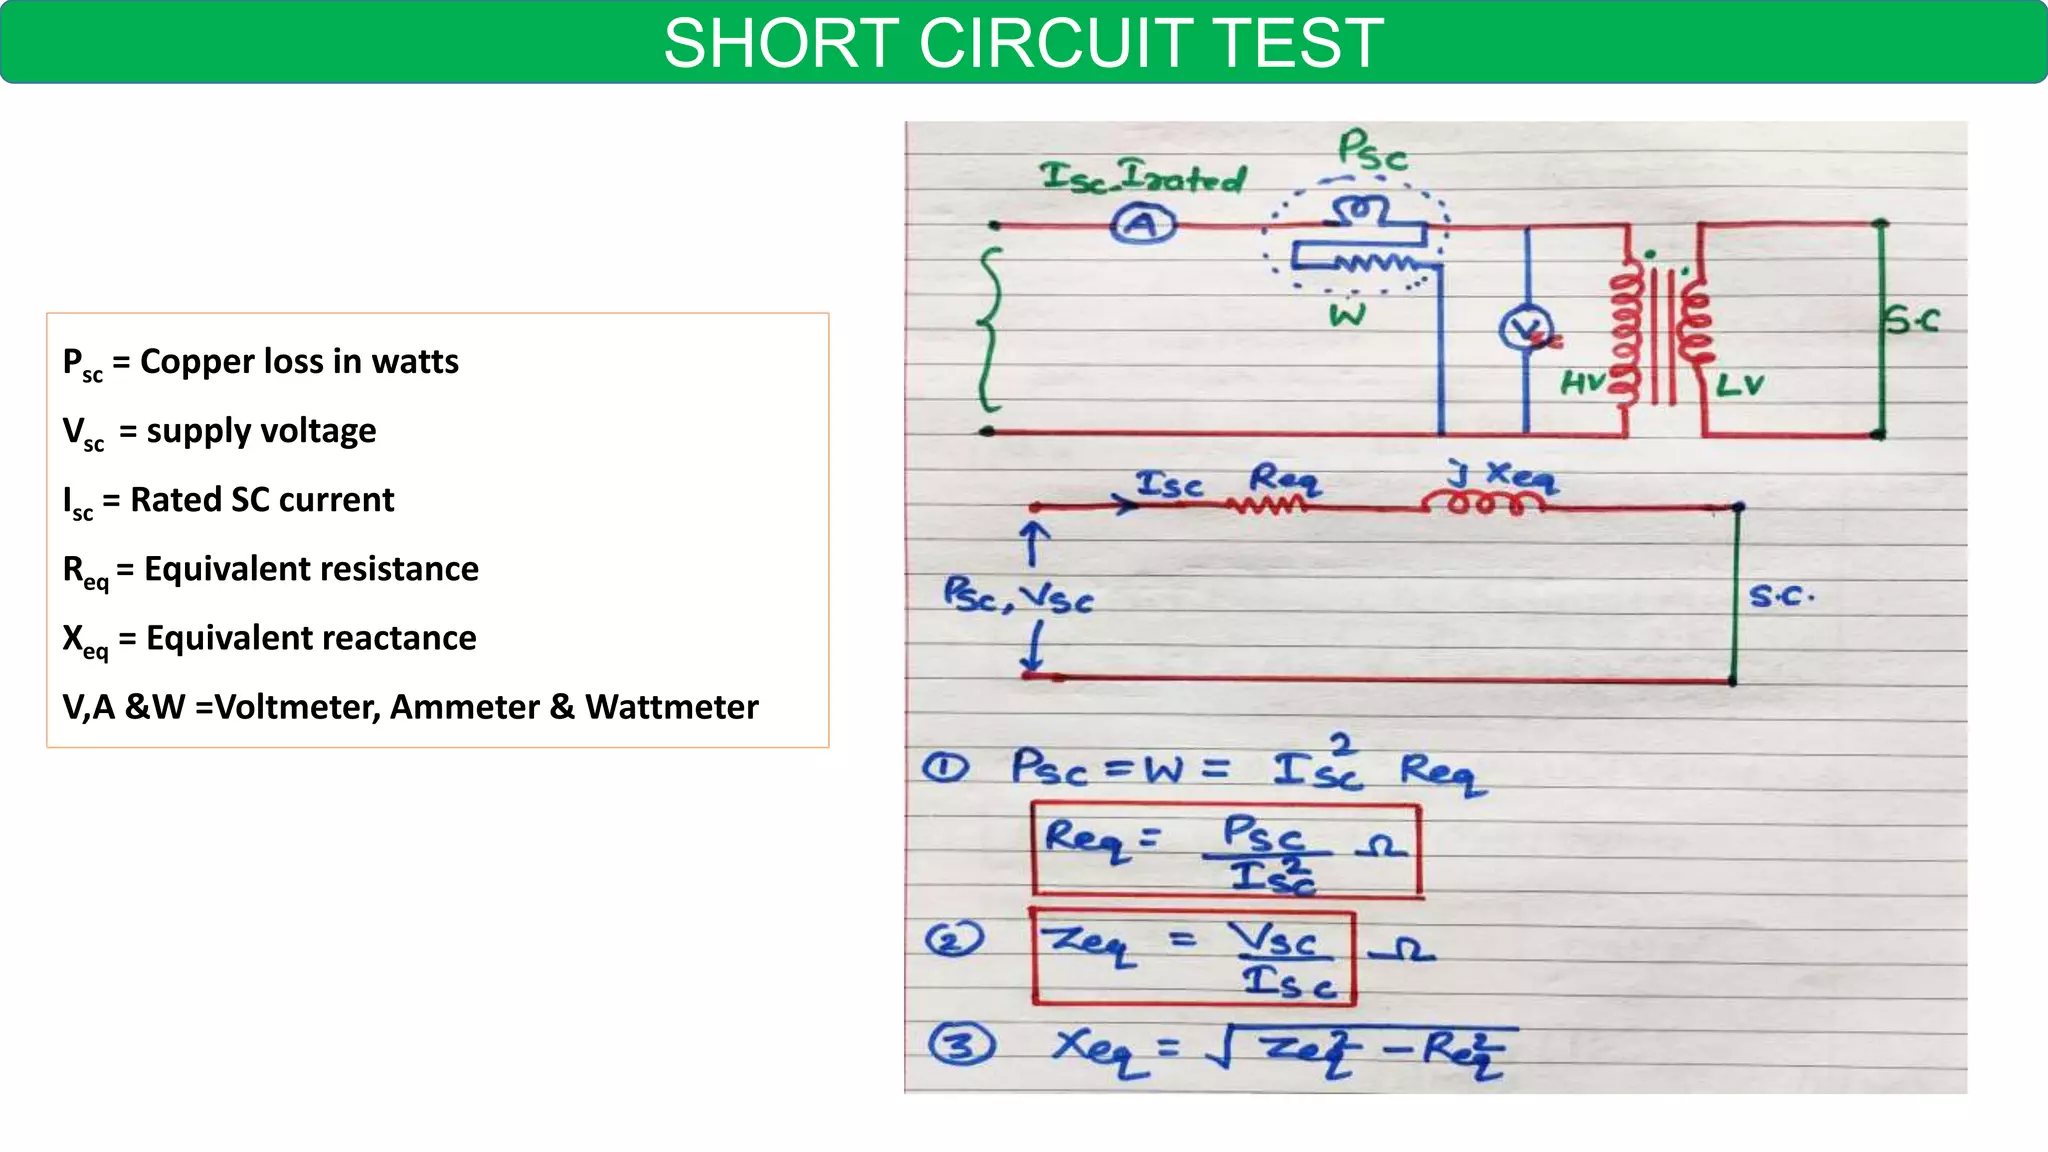 SHORT CIRCUIT TEST
Psc = Copper loss in watts
Vsc = supply voltage
Isc = Rated SC current
Req = Equivalent resistance
Xeq = Equivalent reactance
V,A &W =Voltmeter, Ammeter & Wattmeter
Psc
Isc-Irated
A
W
Vsc
S.C
HV
LV
Isc Req j Xeq
Psc, Vsc
S.C.
① Psc = W = Isc² Req
Req = Psc / Isc² Ω
② Zeq = Vsc / Isc Ω
③ Xeq = √Zeq² - Req²